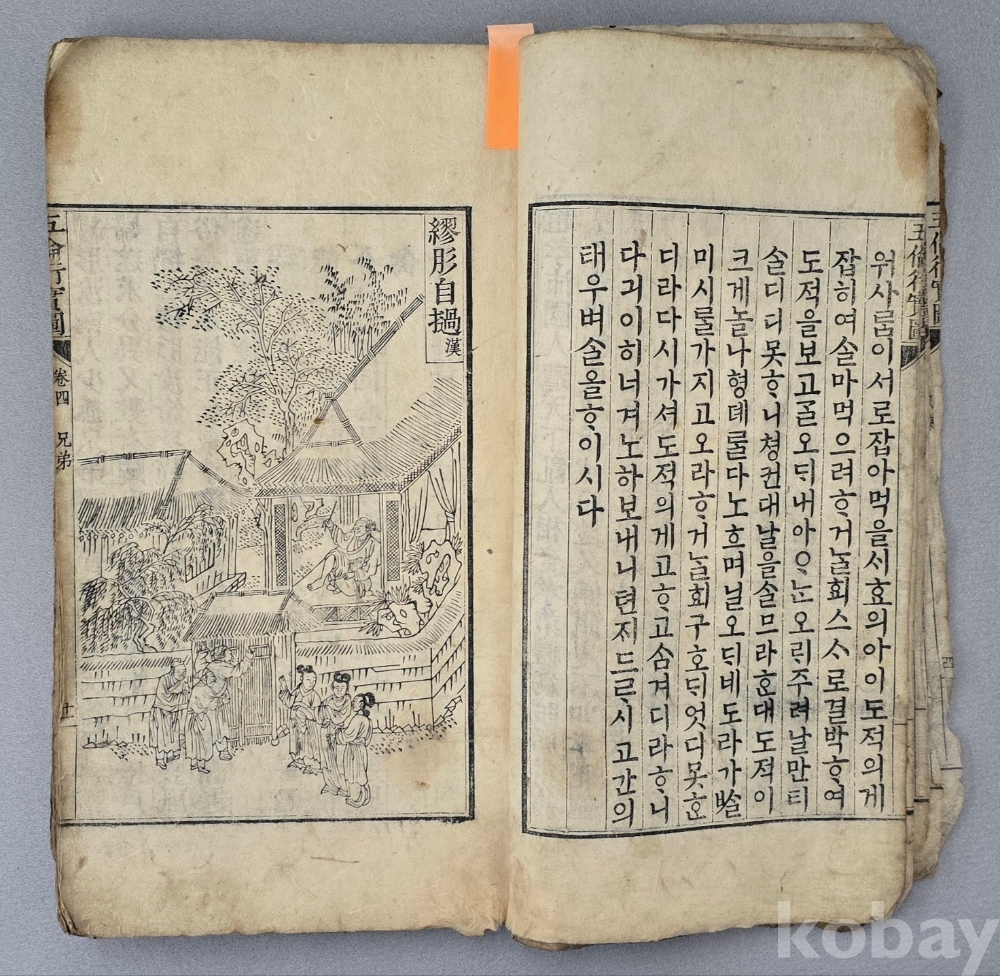 五倫行實圖
워사ᄅᆞᆷ이서로잡아먹을ᄉᆡ효의아이도적의게
잡히여ᄉᆞᆯ마먹으려ᄒᆞ거ᄂᆞᆯ회스ᄉᆞ로결박ᄒᆞ여
도적을보고ᄀᆞᆯ오ᄃᆡ내아ᄋᆞᄂᆞᆫ오ᄅᆡ주려날만티
ᄉᆞᆯ디디못ᄒᆞ니쳥컨대날을ᄉᆞᆯ므라ᄒᆞᆫ대도적이
크게놀나형뎨ᄅᆞᆯ다노흐며닐오ᄃᆡ네도라가ᄡᆞᆯ
미시ᄅᆞᆯ가지고오라ᄒᆞ거ᄂᆞᆯ회구ᄒᆞᄃᆡ엇디못ᄒᆞᆫ
디라다시가셔도적의게고ᄒᆞ고ᄉᆞᆷ겨디라ᄒᆞ니
다긔이히너겨노하보내니텬ᄌᆡ드ᄅᆞ시고간의
태우벼ᄉᆞᆯ을ᄒᆞ이시다
繆肜自撾 漢
五倫行實圖 卷四 兄弟 十
kobay